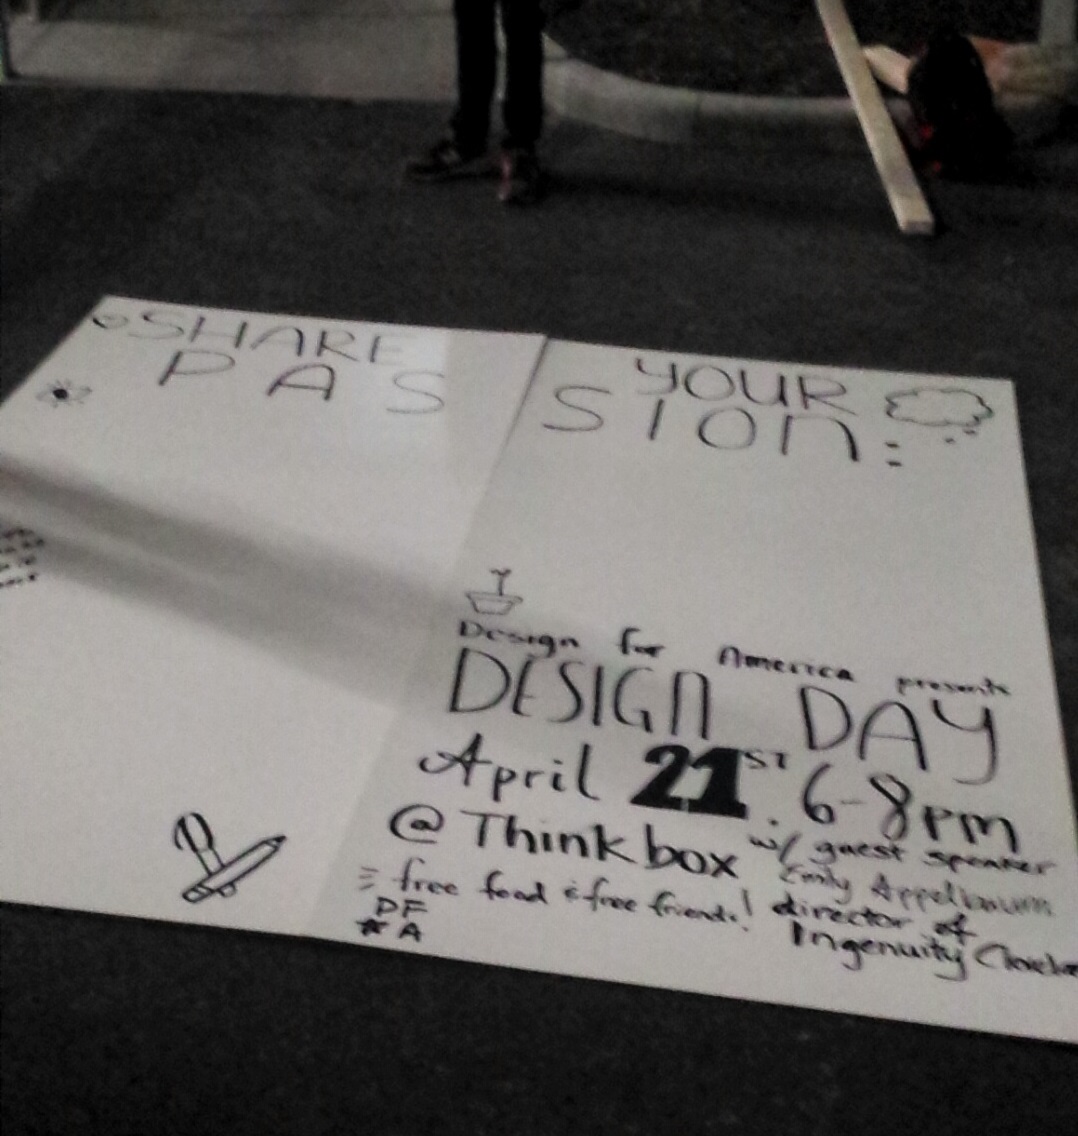 SHARE YOUR
PASSION:
Design for America presents
DESIGN DAY
April 21ST. 6-8pm
@ Thinkbox
w/ guest speaker
Emily Appelbaum
director of
Ingenuity
free food & free friends!
DF
A